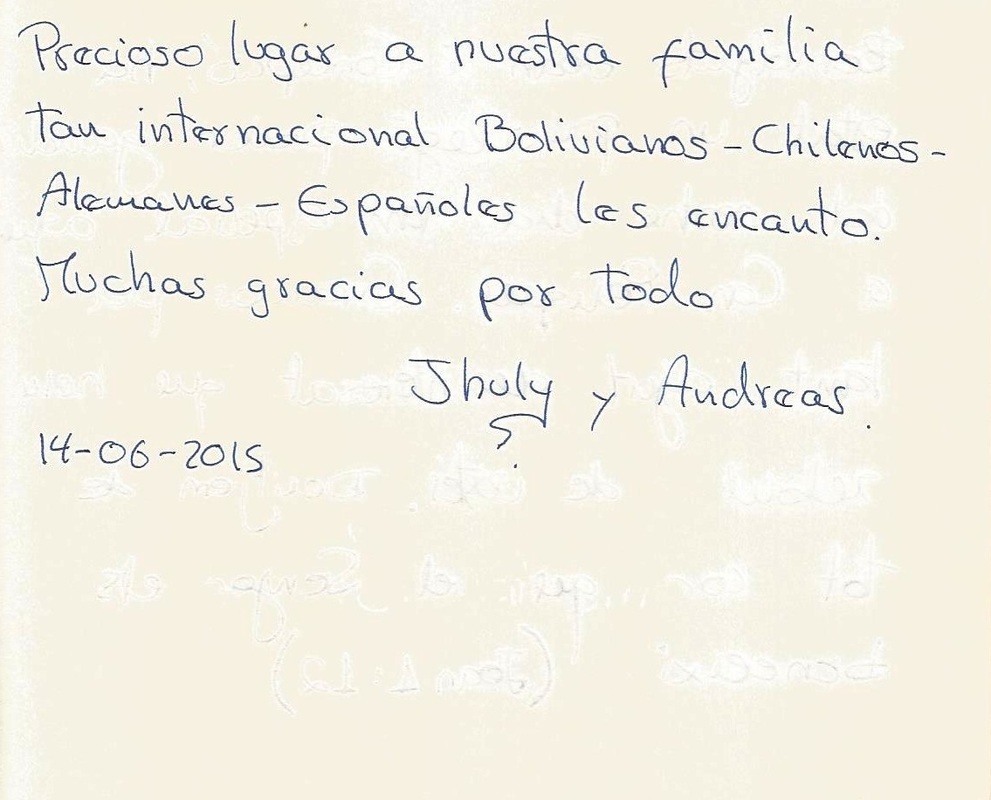 Precioso lugar a nuestra familia
tan internacional Bolivianos - Chilenos -
Alemanes - Españoles les encanto.
Muchas gracias por todo
Jhuly y Andreas.
14-06-2015